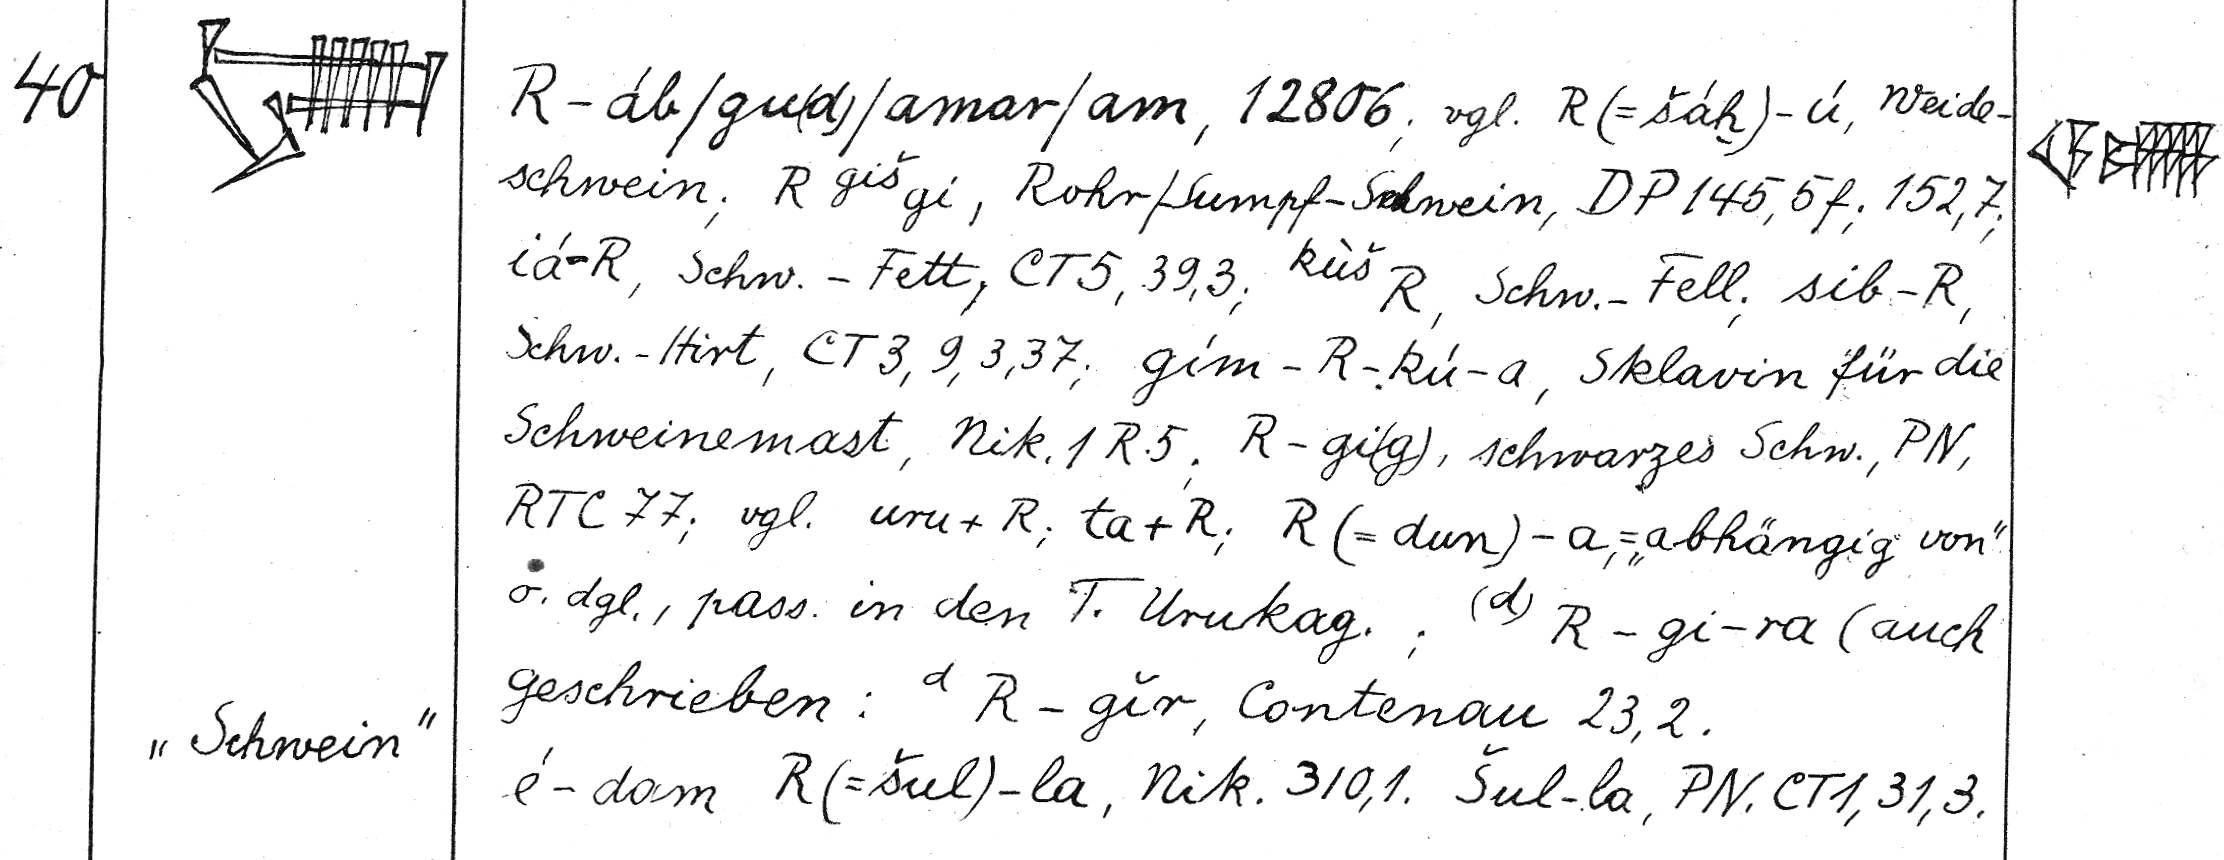 40
R-áb/gu(d)/amar/am, 12806; vgl. R(=šáḫ)-ú, Weide-
schwein; R ᵍⁱšgi, Rohr/Sumpf-Schwein, DP 145,5f; 152,7;
iá-R, Schw.-Fett, CT5, 39,3; kùš R, Schw.-Fell; sib-R,
Schw.-Hirt, CT3, 9, 3,37; gím-R-kú-a, Sklavin für die
Schweinemast, Nik. 1 R.5; R-gi(g), schwarzes Schw., PN,
RTC 77; vgl. uru+R; ta+R; R(=dun)-a, = „abhängig von"
o. dgl., pass. in den T. Urukag. ; (d) R-gi-ra (auch
geschrieben: d R-gǐr, Contenau 23,2.
„Schwein"
é-dam R(=šul)-la, Nik. 310,1. Šul-la, PN. CT1, 31,3.